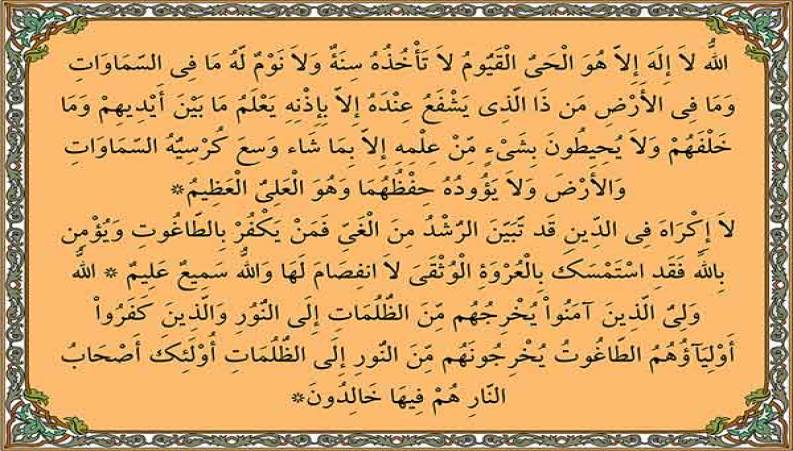 اللّهُ لاَ إِلَهَ إِلاَّ هُوَ الْحَيُّ الْقَيُّومُ لاَ تَأْخُذُهُ سِنَةٌ وَلاَ نَوْمٌ لَّهُ مَا فِى السَّمَاوَاتِ
وَمَا فِى الأَرْضِ مَن ذَا الَّذِى يَشْفَعُ عِنْدَهُ إِلاَّ بِإِذْنِهِ يَعْلَمُ مَا بَيْنَ أَيْدِيهِمْ وَمَا
خَلْفَهُمْ وَلاَ يُحِيطُونَ بِشَىْءٍ مِّنْ عِلْمِهِ إِلاَّ بِمَا شَاء وَسِعَ كُرْسِيُّهُ السَّمَاوَاتِ
وَالأَرْضَ وَلاَ يَؤُودُهُ حِفْظُهُمَا وَهُوَ الْعَلِىُّ الْعَظِيمُ*
لاَ إِكْرَاهَ فِى الدِّينِ قَد تَّبَيَّنَ الرُّشْدُ مِنَ الْغَىِّ فَمَنْ يَكْفُرْ بِالطَّاغُوتِ وَيُؤْمِن
بِاللّهِ فَقَدِ اسْتَمْسَكَ بِالْعُرْوَةِ الْوُثْقَىَ لاَ انفِصَامَ لَهَا وَاللّهُ سَمِيعٌ عَلِيمٌ * اللّهُ
وَلِىُّ الَّذِينَ آمَنُواْ يُخْرِجُهُم مِّنَ الظُّلُمَاتِ إِلَى النُّوُرِ وَالَّذِينَ كَفَرُواْ
أَوْلِيَآؤُهُمُ الطَّاغُوتُ يُخْرِجُونَهُم مِّنَ النُّورِ إِلَى الظُّلُمَاتِ أُوْلَئِكَ أَصْحَابُ
النَّارِ هُمْ فِيهَا خَالِدُونَ*